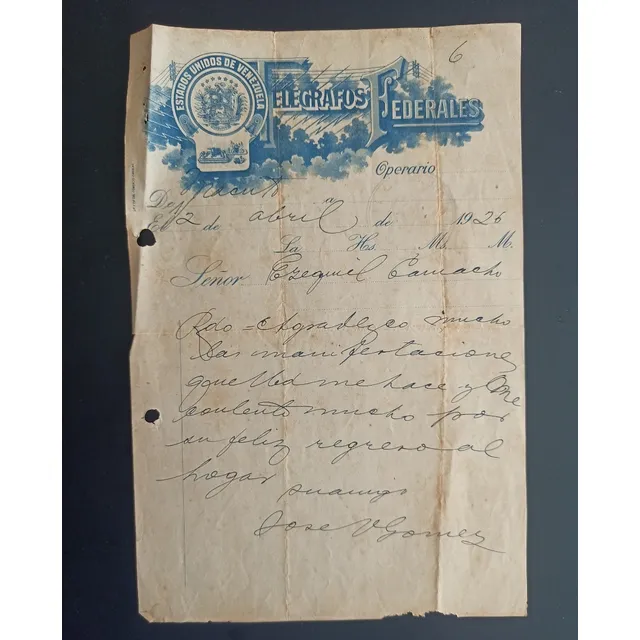 6
ESTADOS UNIDOS DE VENEZUELA
TELEGRAFOS FEDERALES
Operario
De Macuto a
El 2 de abril de 1926
La Hs. Ms. M.
Señor Ezequiel Camacho
Rdo = Agradezco mucho
las manifestaciones
que Ud me hace y me
contento mucho por
su feliz regreso al
hogar
su amigo
Jose V Gomez